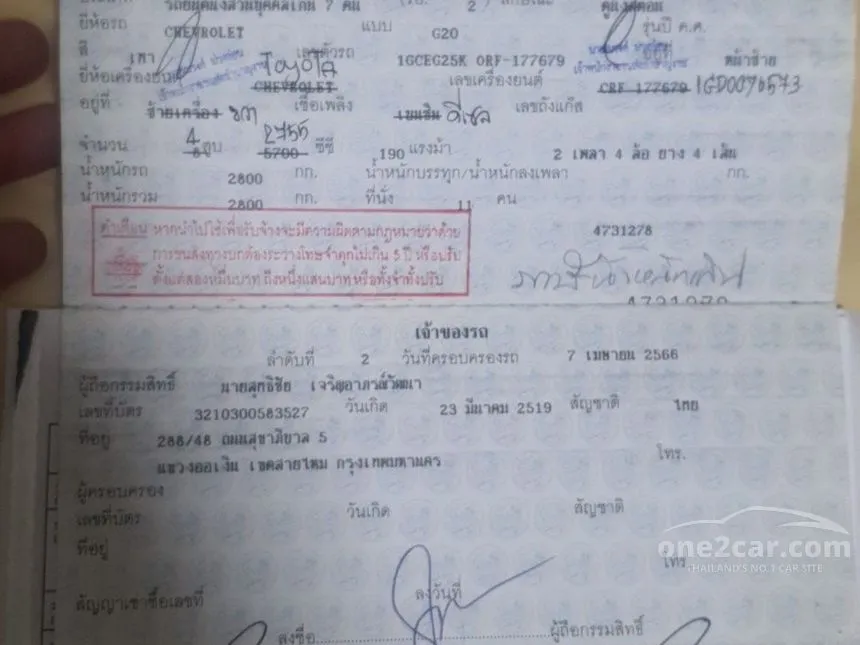 รถยนต์นั่งส่วนบุคคลเกิน 7 คน
ยี่ห้อรถ CHEVROLET แบบ G20 รุ่นปี ค.ศ.
สี เทา เลขตัวรถ 1GCEG25K ORF-177679 หน้าซ้าย
ยี่ห้อเครื่องยนต์ CHEVROLET TOYOTA เลขเครื่องยนต์ CRF 177679 1GD0076573
อยู่ที่ ซ้ายเครื่อง ขวา เชื้อเพลิง เบนซิน ดีเซล เลขถังแก๊ส
จำนวน 8 4 สูบ 5700 2755 ซีซี 190 แรงม้า 2 เพลา 4 ล้อ ยาง 4 เส้น
น้ำหนักรถ 2800 กก. น้ำหนักบรรทุก/น้ำหนักลงเพลา กก.
น้ำหนักรวม 2800 กก. ที่นั่ง 11 คน
คำเตือน หากนำไปใช้เพื่อรับจ้างจะมีความผิดตามกฎหมายว่าด้วย
การขนส่งทางบกต้องระวางโทษจำคุกไม่เกิน 5 ปี หรือปรับ
ตั้งแต่สองหมื่นบาท ถึงหนึ่งแสนบาท หรือทั้งจำทั้งปรับ
4731278
เจ้าของรถ
ลำดับที่ 2 วันที่ครอบครองรถ 7 เมษายน 2566
ผู้ถือกรรมสิทธิ์ นายสุทธิชัย เจริญอาภรณ์วัฒนา
เลขที่บัตร 3210300583527 วันเกิด 23 มีนาคม 2519 สัญชาติ ไทย
ที่อยู่ 288/48 ถนนสุขาภิบาล 5
แขวงออเงิน เขตสายไหม กรุงเทพมหานคร โทร.
ผู้ครอบครอง
เลขที่บัตร วันเกิด สัญชาติ
ที่อยู่ โทร
สัญญาเช่าซื้อเลขที่ ลงวันที่
ลงชื่อ ผู้ถือกรรมสิทธิ์
one2car.com
THAILAND'S NO.1 CAR SITE